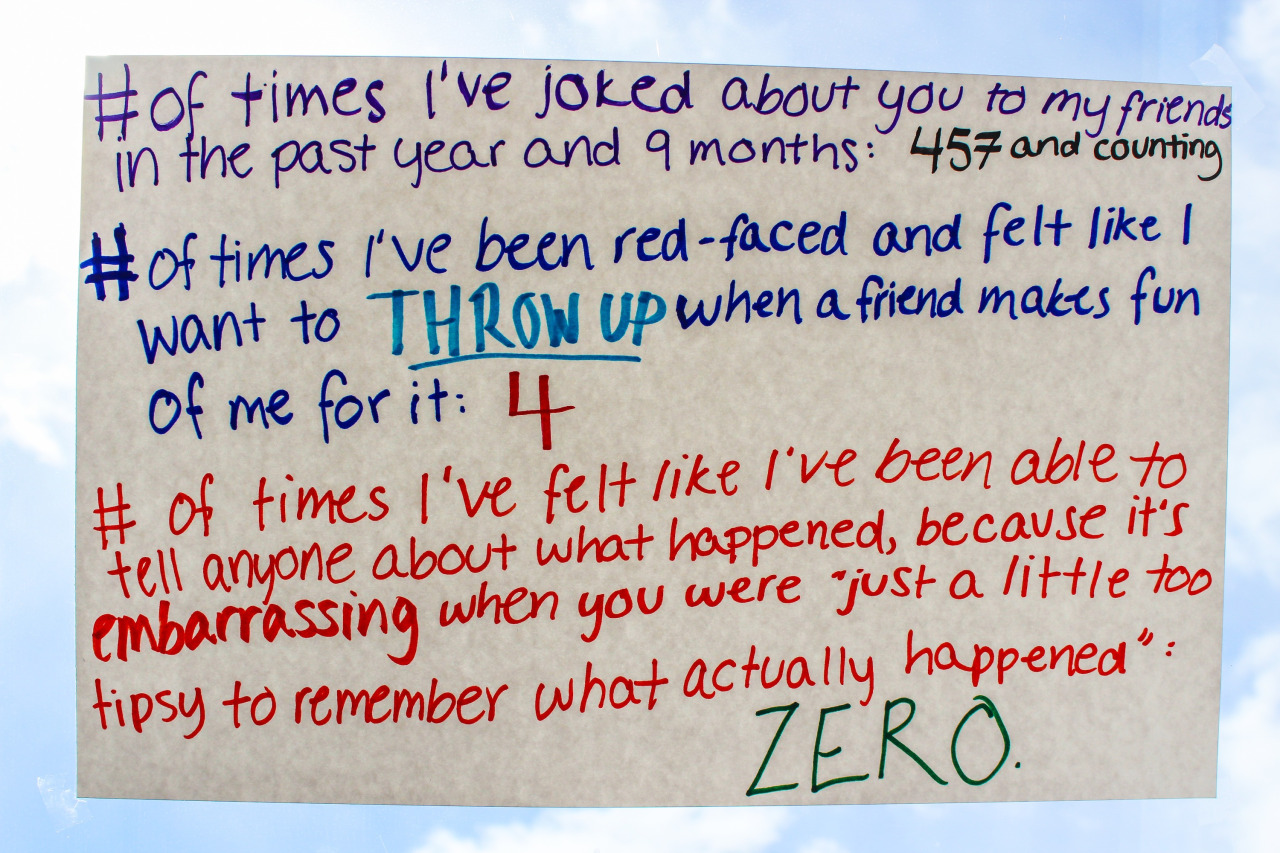 # of times I've joked about you to my friends
in the past year and 9 months: 457 and counting
# of times I've been red-faced and felt like I
want to THROW UP when a friend makes fun
of me for it: 4
# of times I've felt like I've been able to
tell anyone about what happened, because it's
embarrassing when you were "just a little too
tipsy to remember what actually happened":
ZERO.